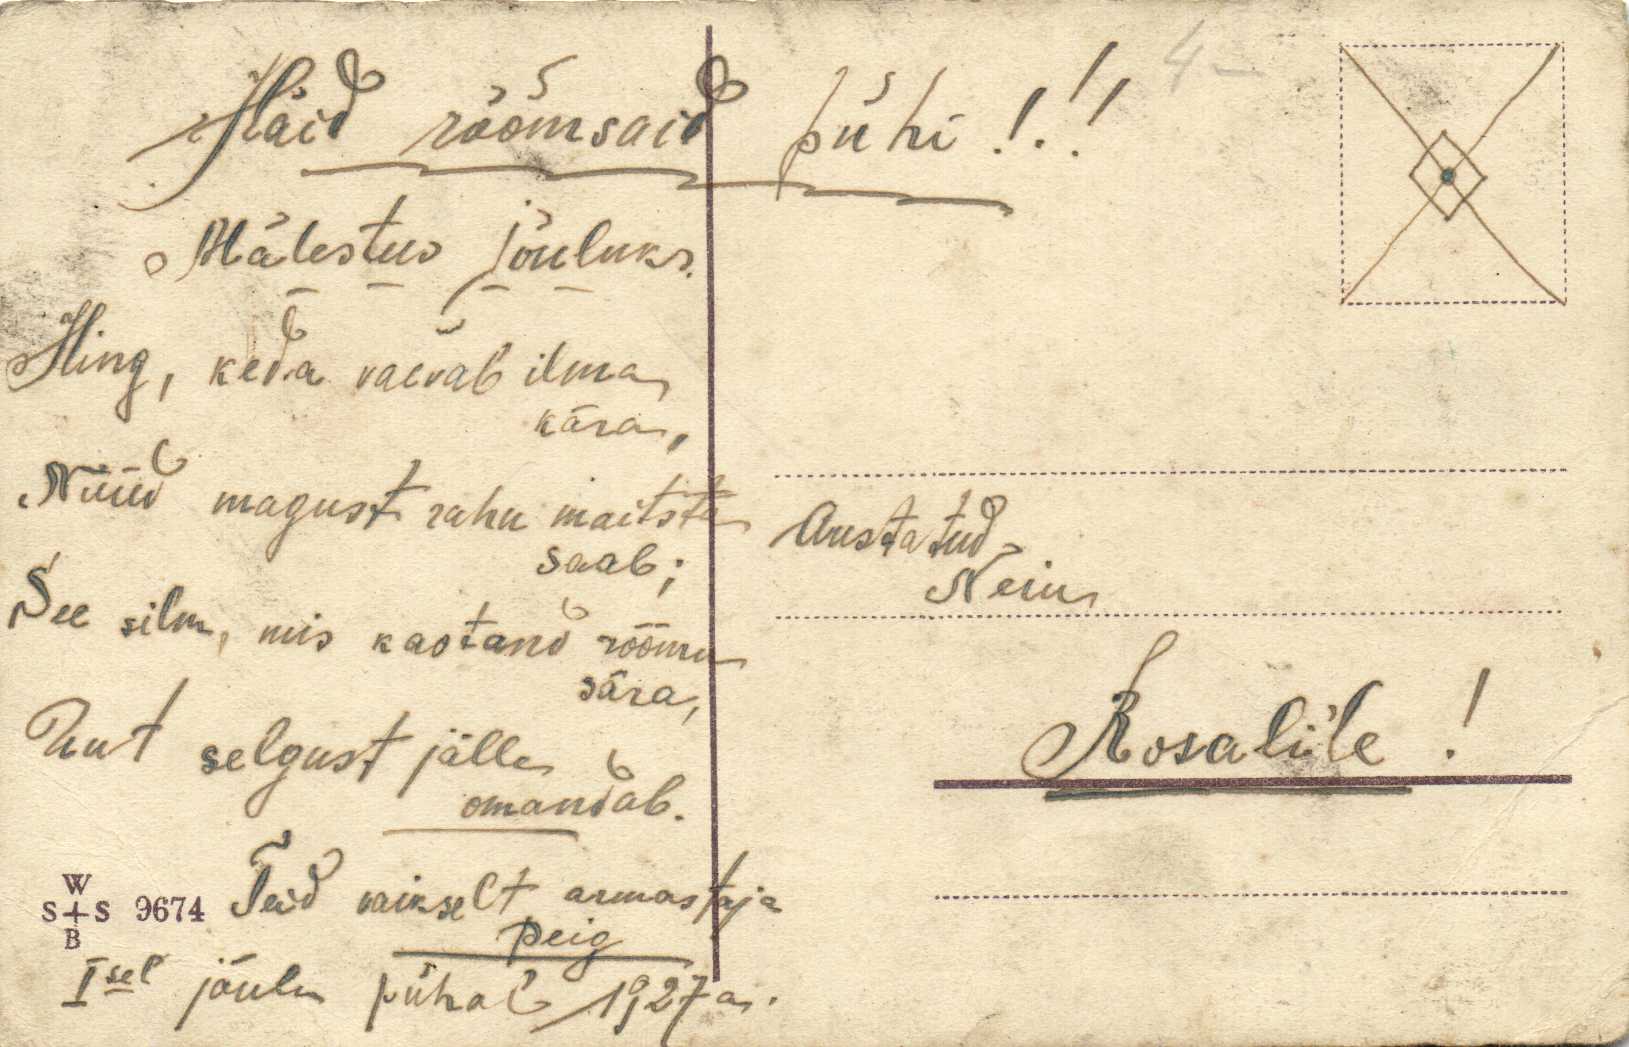 Häid rõõmsaid pühi!.!!
Mälestus jõuluks.
Hing, keda vaevab ilma
kära,
Nüüd magust rahu maitsta
saab;
See silm, mis kaotand rõõmu
sära,
Uut selgust jälle
omandab.
Teid vaikselt armastaja
peig
Isel jõulu pühal 1927 a.
W
S+S 9674
B
4 –
Austatud
Neiu
Rosali'le!